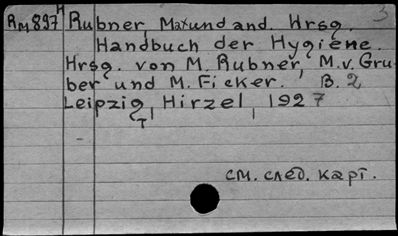 H
RM897 Rubner, Max und and. Hrsg. 3
Handbuch der Hygiene.
Hrsg. von M. Rubner, M.v. Gru-
ber und M. Ficker. B. 2
Leipzig, Hirzel, 1927
т
см. след. карт.